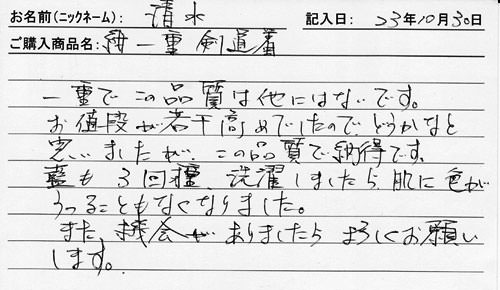 お名前(ニックネーム): 清水 記入日: 23年10月30日
ご購入商品名: 紺一重剣道着
一重でこの品質は他にはないです。
お値段が若干高めでしたのでどうかなと
思いましたが、この品質で納得です。
藍も3回程、洗濯しましたら、肌に色が
うつることもなくなりました。
また機会がありましたらよろしくお願い
します。